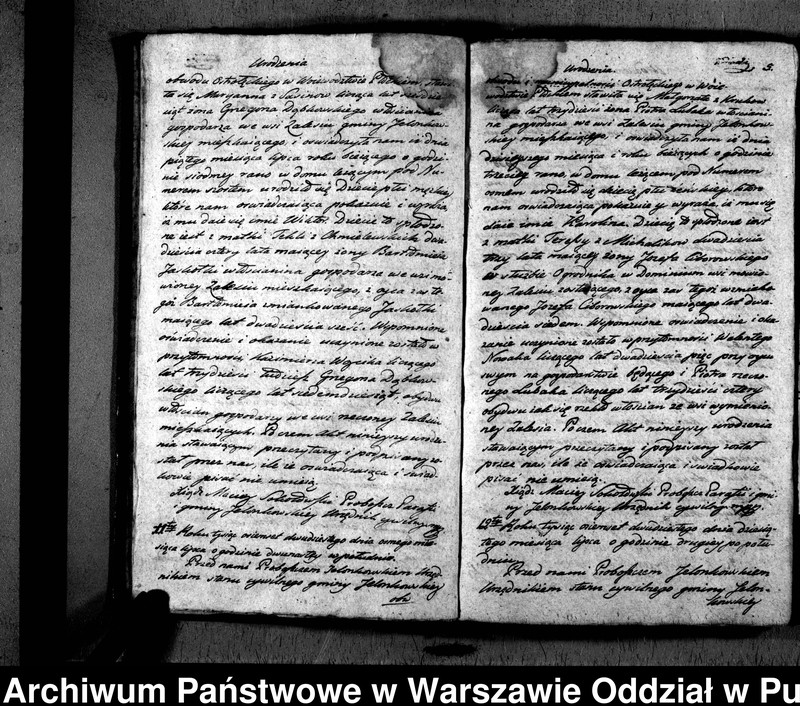 Urodzenia
obwodu Ostrołęckiego w Woiewodztwie Płockiem stawi-
ła się Maryanna z liczący lat siedmdzie-
siąt żona Grzegorza Dąbkowskiego włościanina
gospodarza we wsi Zalesiu gminy Jelonkow-
skiej mieszkaiącego, i oświadczyła nam iż dnia
piątego miesiąca lipca roku bieżącego o godzi-
nie siodmey rano w domu leżącym pod Nu-
merem szostem urodziło się Dziecię płci męskiej
które nam oświadczaiąca pokazuie i wyraża
iż mu daie się imie Wiktor. Dziecie to spłodzo-
ne iest z matki Tekli z Chmielewskich dwa-
dziescia cztery lata maiącey żony Bartłomieia
Jaskołki włościanina gospodarza we wsi mo-
wioney Zalesiu mieszkaiącego, z oyca zas te-
goż Bartłomieia wzmiankowanego Jaskołki
maiącego lat dwadziescia sześć. Wspomnione
oświadczenie i okazanie uczynione zostało w
przytomności Kazimierza Woycika liczącego
lat trzydziesci tudzież Grzegorza Dąbkow-
skiego liczącego lat siedmdziesiąt, obydwu
włościan gospodarzy we wsi rzeczoney Zalesiu
mieszkaiących. Poczem Akt ninieyszy urodze-
nia stawaiącym przeczytany i podpisany zo-
stał przez nas, ile że oświadczaiąca i świad-
kowie pisać nie umieią.
Xiądz Maciey Sokołowski Proboszcz Parafii
i gminy Jelonkowskiey Urzędnik cywilny
11te Roku tysiąc osiemset dwudziestego dnia osmego mie-
siąca lipca o godzinie dwunastey w południe.
Przed nami Proboszczem Jelonkowskiem Urzę-
dnikiem stanu cywilnego gminy Jelonkowskiey
ob
5.
Urodzenia
Ostrołęckiego w Woie-
wodztwie Płockiem stawiła się Małgorzata z
licząca lat trzydziesci żona Piotra Lubaka włosciani-
na gospodarza we wsi Zalesiu gminy Jelonkow-
skiej mieszkaiącego, i oświadczyła nam iż dnia
dziewiątego miesiąca i roku bieżących o godzinie
trzeciey rano, w domu leżącem pod Numerem
osmem urodziło się dziecię płci żeńskiey, które
nam oświadczaiąca pokazuie i wyraża, iż mu się
daie imie Karolina. Dziecię to spłodzone iest
z matki Teressy z Michalikow dwadziescia
trzy lata maiącey żony Jozefa Ciborowskiego
w służbie Ogrodnika w Dominium wsi mowio-
ney Zalesiu zostaiącego, z oyca zas tegoż wzmianko-
wanego Jozefa Ciborowskiego maiącego lat dwa-
dziescia siedem. Wspomnione oświadczenie i oka-
zanie uczynione zostało w przytomności Walentego
Nowaka liczącego lat dwadziescia pięć przy oycu
swym na gospodarstwie będącego i Piotra rzeczo-
nego Lubaka liczącego lat trzydziesci cztery
obydwu iak się rzekło włościan ze wsi wymienio-
ney Zalesia. Poczem Akt ninieyszy urodzenia
stawaiącym przeczytany i podpisany został
przez nas, ile że oświadczaiąca i świadkowie
pisać nie umieią.
Xiądz Maciey Sokołowski Proboszcz Parafii i gmi-
ny Jelonkowskiey Urzędnik cywilny
12te Roku tysiąc osiemset dwudziestego dnia dziesią-
tego miesiąca lipca o godzinie drugiey po połu-
dniu.
Przed nami Proboszczem Jelonkowskiem
Urzędnikiem stanu cywilnego gminy Jelon-
kowskiey
Archiwum Państwowe w Warszawie Oddział w Pu